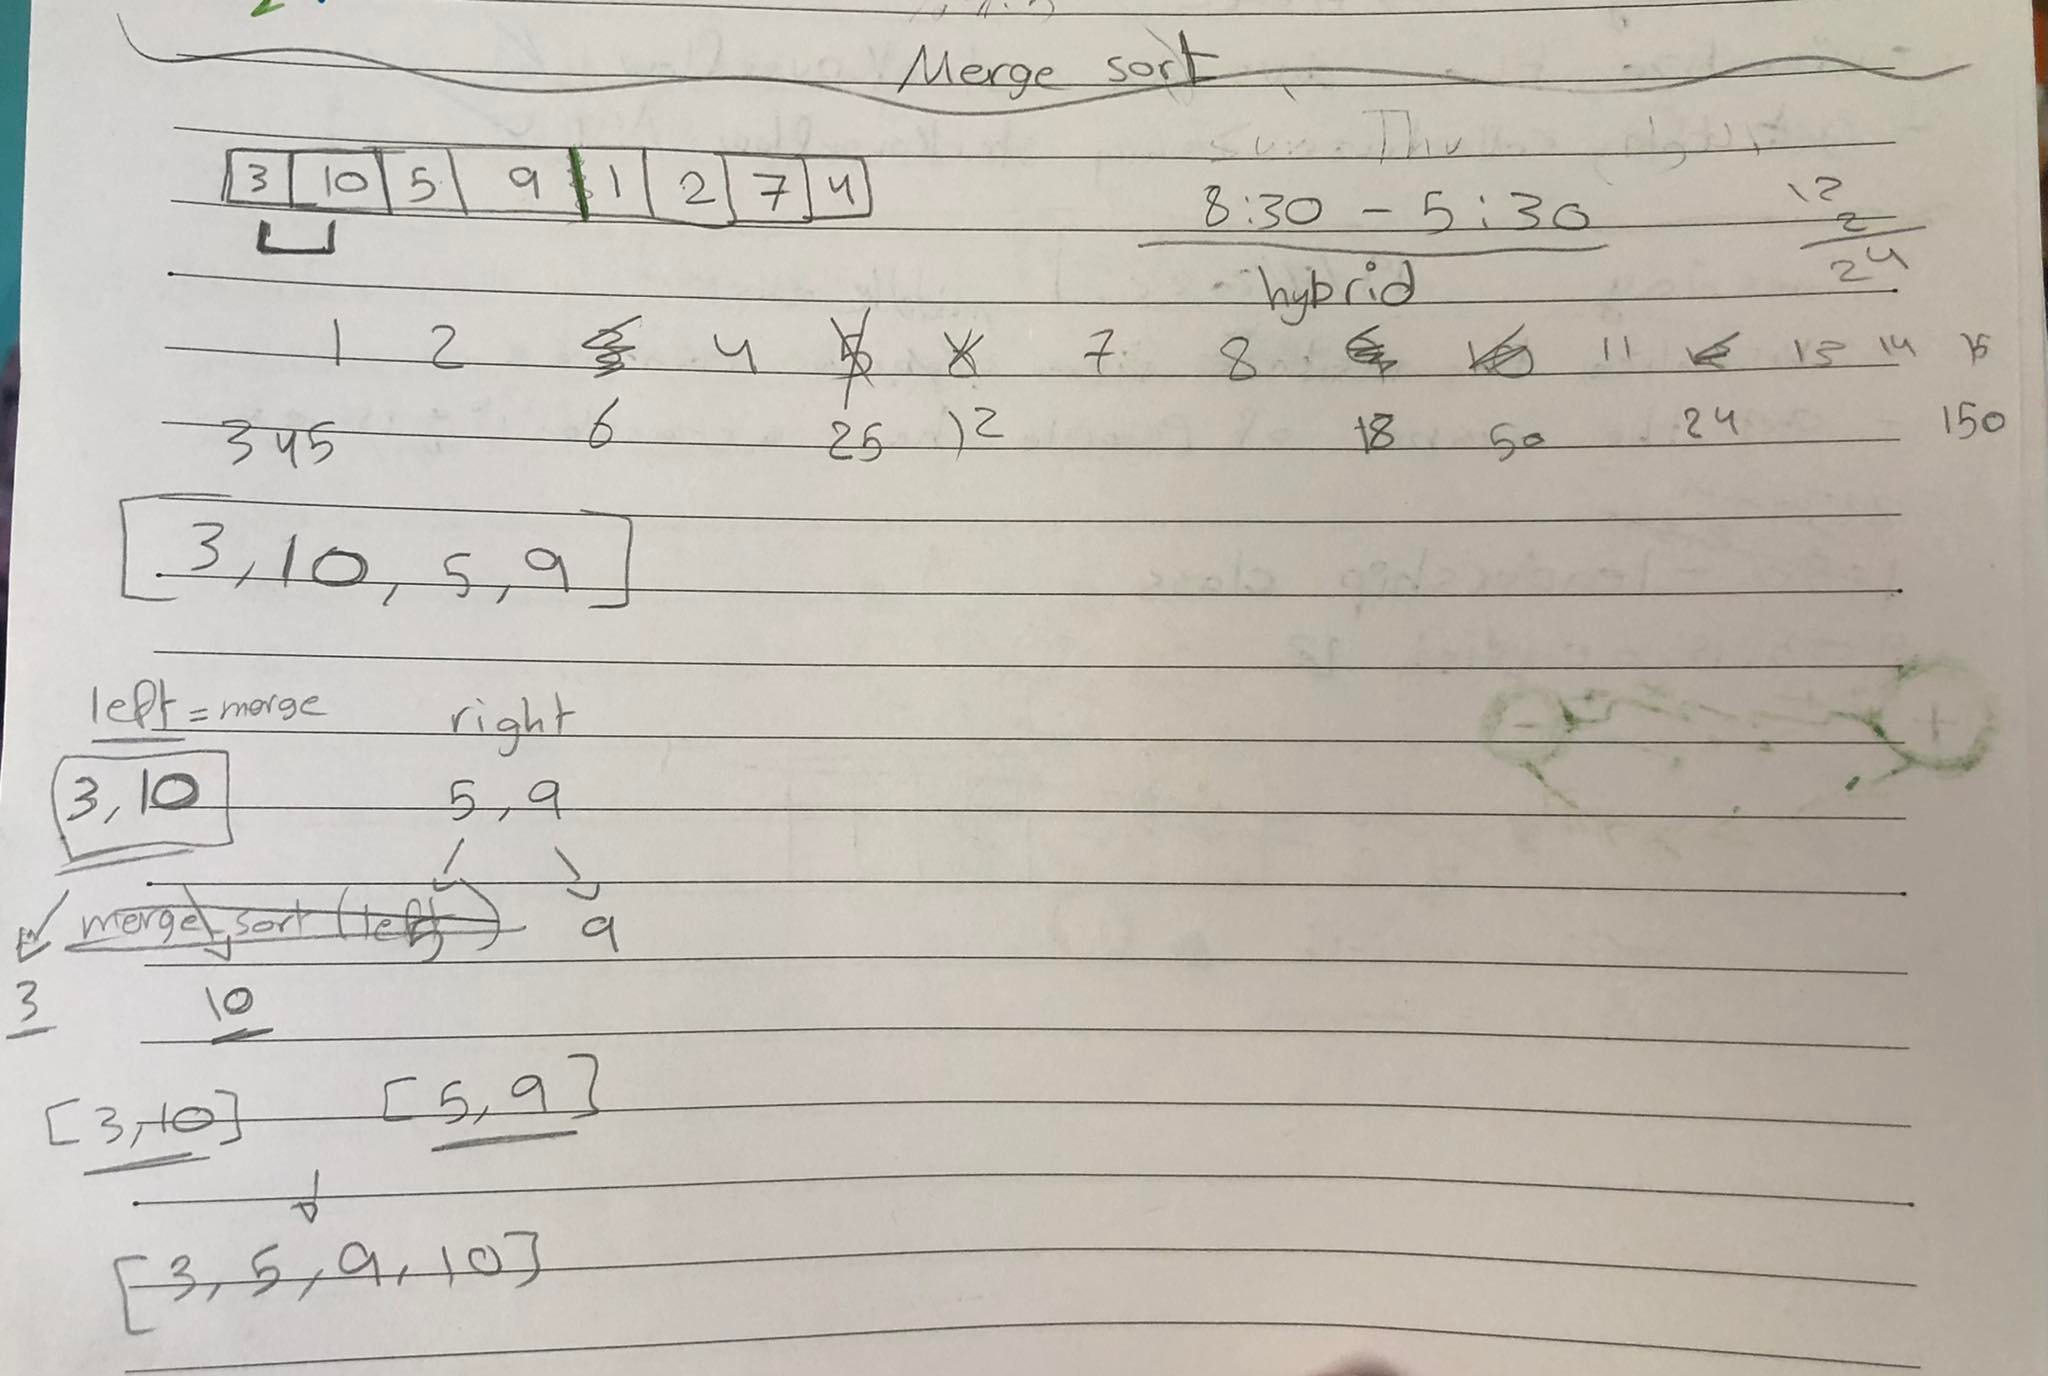 Merge sort
sun - Thu
3 10 5 9 1 2 7 4
8:30 - 5:30
12
2
24
hybrid
1 2 4 5 6 7 8 10 11 12 13 14 15
345 6 25 12 18 50 24 150
[3, 10, 5, 9]
left = merge right
3, 10 5, 9
merge sort (left) 9
3 10
[3, 10] [5, 9]
[3, 5, 9, 10]
- +